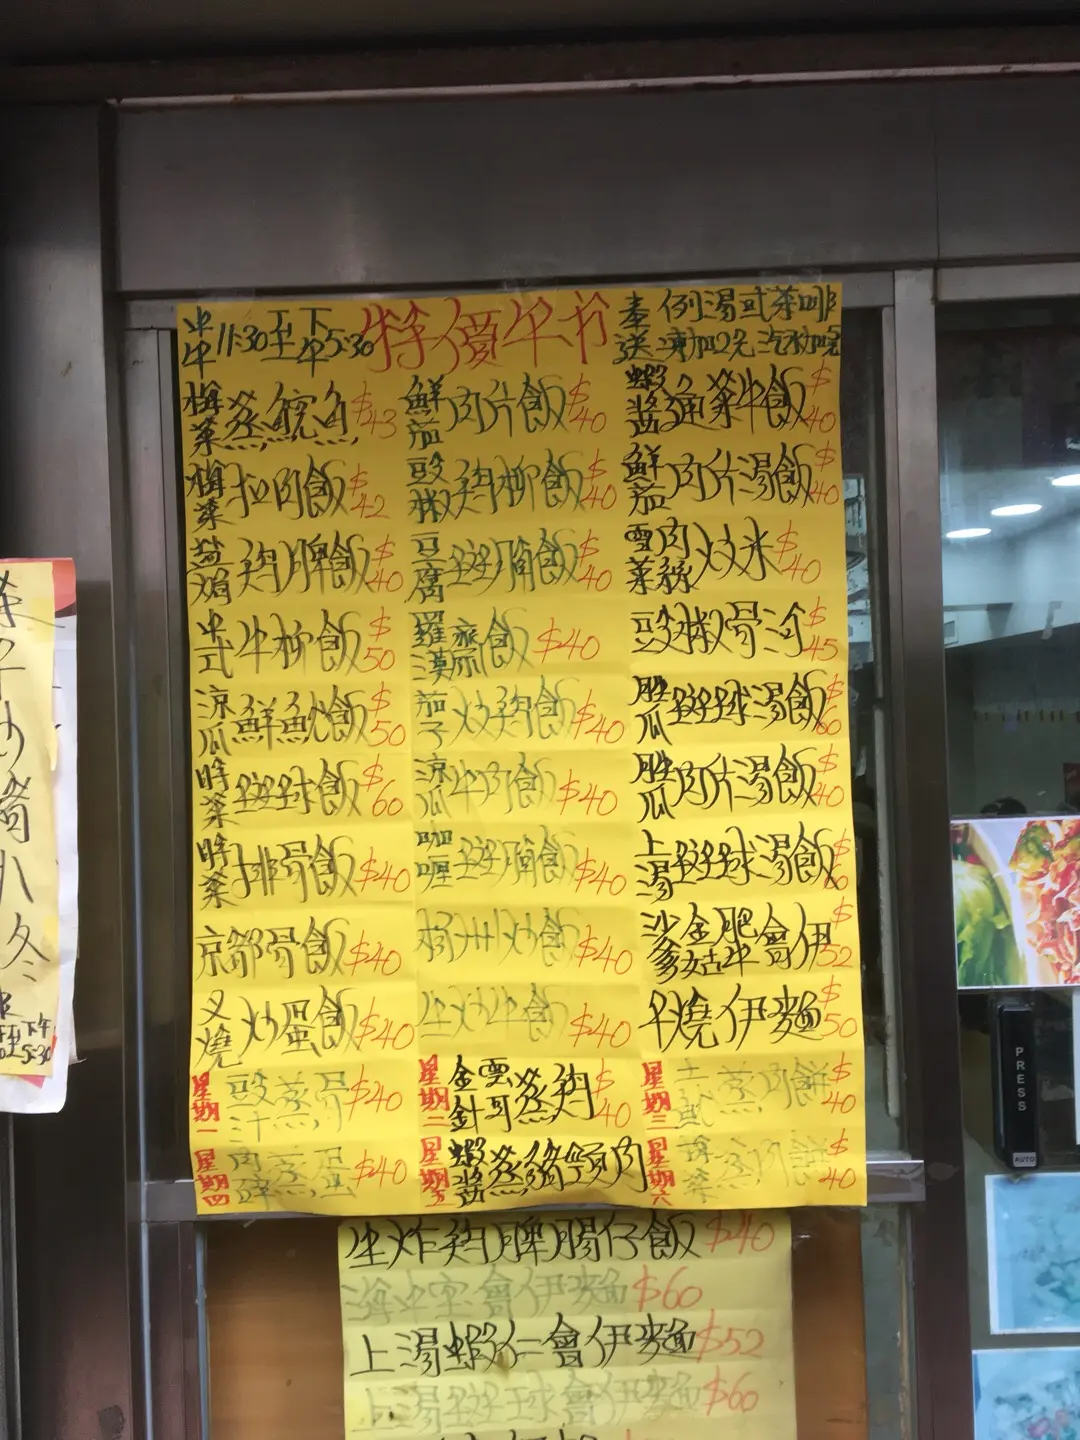 中午11:30至下午5:30
特價午市
奉送例湯或茶啡
凍加2元
梅菜蒸鯇魚 $43
梅菜扣肉飯 $42
鹽焗鸡脾飯 $40
中式牛柳飯 $50
涼瓜鮮魷飯 $50
時菜斑球飯 $60
時菜排骨飯 $40
京都骨飯 $40
叉燒炒蛋飯 $40
鮮茄肉片飯 $40
豉椒鸡柳飯 $40
豆腐斑腩飯 $40
羅漢齋飯 $40
茄子炒鸡飯 $40
涼瓜牛肉飯 $40
咖喱斑腩飯 $40
楊州炒飯 $40
生炒牛飯 $40
蝦醬通菜牛飯 $40
鮮茄肉片湯飯 $40
雪菜肉絲炆米 $40
豉椒骨河 $45
勝瓜斑球湯飯 $60
勝瓜肉片湯飯 $40
上湯斑球湯飯 $60
沙爹金菇肥牛會伊 $52
干燒伊麵 $50
星期一 豉汁蒸骨 $40
星期二 金針雲耳蒸鸡 $40
星期三 土魷蒸肉餅 $40
星期四 肉碎蒸蛋 $40
星期五 蝦醬蒸豬頸肉
星期六 蒸肉餅 $40
生炸鸡脾腸仔飯 $40
海中宝會伊麵 $60
上湯蝦仁會伊麵 $52
上湯斑球會伊麵 $60
茄子
下午
5:30
PRESS
AUTO